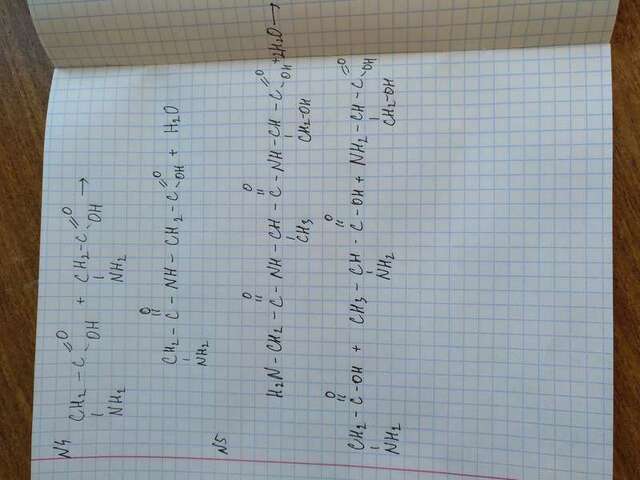 N4
CH2 – C =O – OH + CH2 – C =O – OH →
NH2 NH2
O
CH2 – C – NH – CH2 – C =O – OH + H2O
NH2
N5
O O
H2N – CH2 – C – NH – CH – C – NH – CH – C =O – OH + 2H2O →
CH3 CH2–OH
O O
CH2 – C – OH + CH3 – CH – C – OH + NH2 – CH – C =O – OH
NH2 NH2 CH2–OH